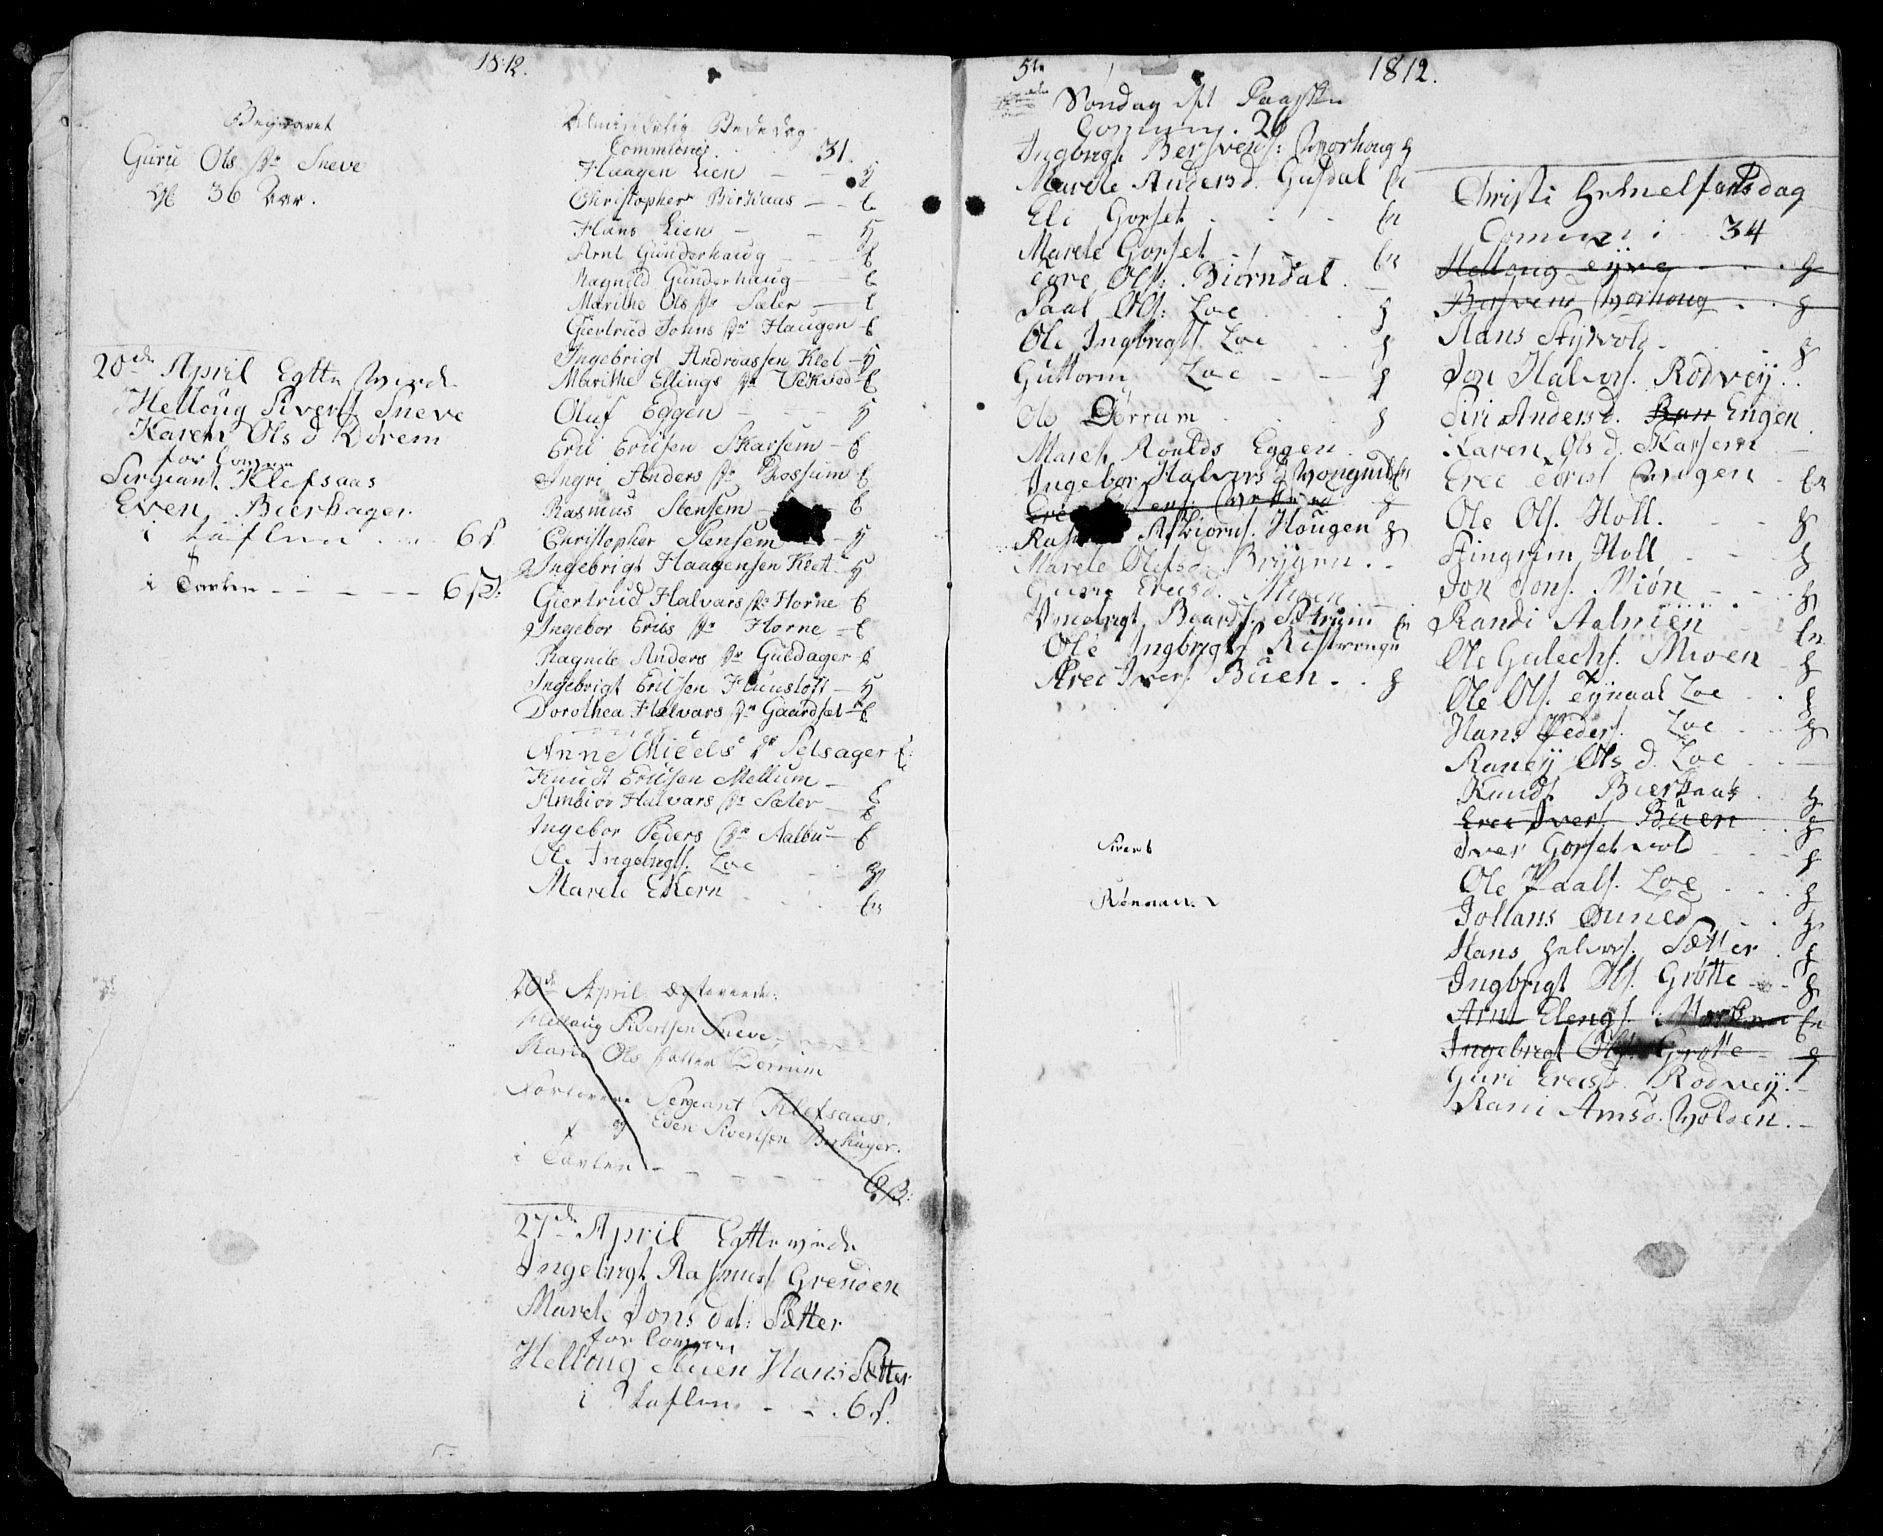 1812.
Begravet
Guru Ols Dr Sneve
36 Aar.
20de April Egtevied
Helloug Siverts. Sneve
Karen Ols d Dørem
forlovere
Sergeant Klefsaas
Even Bierkager
i taflen . . 6 s.
i Tavlen - - - - - 6 s:
Almindelig Bededag
Communic. 31.
Haagen Lien
Christopher Birkaas
Hans Lien
Arnt Gunderhaug
Ragnild Gunderhaug
Marithe Ols Dr Sæter
Giertrud Johns Dr Haugen
Ingebrigt Andreassen Klet
Marithe Ellings Dr Vekved
Oluf Eggen
Eric Ericsen Skarsem
Ingri Anders Dr Rossum
Rasmus Stensem
Christopher Stensem
Ingebrigt Haagensen Klet
Giertrud Halvars Dr Horne
Ingebor Erics Dr Horne
Ragnile Anders Dr Guldager
Ingebrigt Ericsen Hunstoft
Dorothea Halvars Dr Gaardset
Anne Micels dr Selsager
Knudt Ericsen Mellum
Ambior Halvars Dr Sæter
Ingebor Peders Dr Aalbu
Ole Ingebrigts. Loe
Marete Ekern
20de April Egteviede:
Hellaug Sivertsen Sneve,
Karie Ols Datter Dorrum
Forlovere Sergeant Klefsaas.
og Even Sivertsen Birkager.
i Tavlen - - - - 6 s:
27de April Egtteviede
Ingebrigt Rasmuss. Grenden
Marete Jons dat: Sætter
forlovere
Helloug Stuen Hans Sætter
i taflen - - . 6 s.
5te 1812.
Søndag eft Paaske
Comun. 26
Ingbrigt Bersvens: Worhoug
Marete Andersd. Gulsdal
Eli Gorset
Marete Gorset
Tore Ols: Biørndal
Paal Ols: Loe
Ole Ingbrigts. Loe
Guttorm Loe
Ole Dørrum
Maret Roalds Eggen
Ingebor Halvors d
Rasmus Asbiørns. Hougen
Marete Olefsd. Bryggen
Guru Ericsd. Moen
Baards. Sætrum
Ole Ingbrigts
Eric Ivers. Buen
Sivert
Rønnau
Christi Hemelfartsdag
Comuni 34
Helloug
Bersvene Worhoug
Hans
Jon Halvors. Rodvey
Siri Andersd. Engen
Karen Ols d. Karsem
Eric Engen
Ole Ols. Holl.
Stingrim Holl
Jon Jons. Miøn
Randi Aalmien
Ole Moen
Ole Ols. Loe
Hans Peders. Loe
Raney Ols d. Loe
Knudt Bierkaas
Eric Ivers. Buen
Iver Gorsetvold
Ole Paals. Loe
Jollans Ouned
Hans Halvors. Sætter
Ingbrigt Ols. Grøtte
Arnt Elengs.
Ingebrigt Ols. Grøtte
Guri Ericsd. Rodvey
Rani Amsd. Wolden